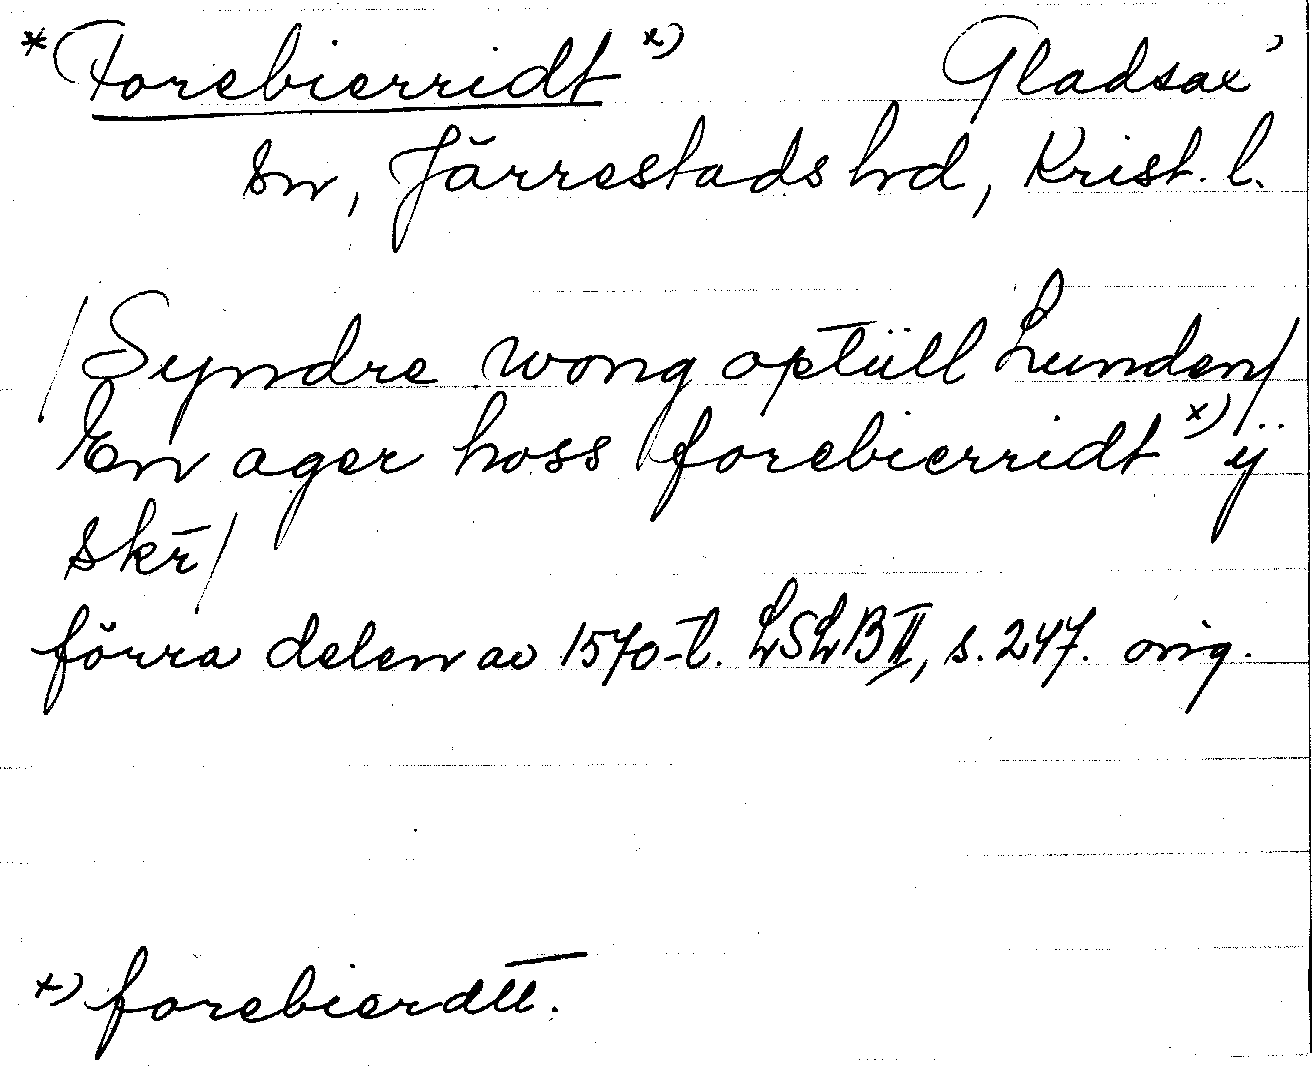 *Forebierridt x) Gladsax'
sn, Järrestads hrd, Krist. l.
/Syndre wong optüll Lunden/
En ager hoss forebierridt x) ÿ
skr̄/
förra delen av 1570-t. LSLB II, s. 247. orig.
x) forebierdtt.